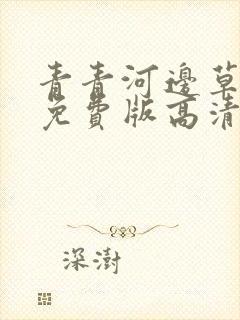 青青河邊草
免費版高清
深澍